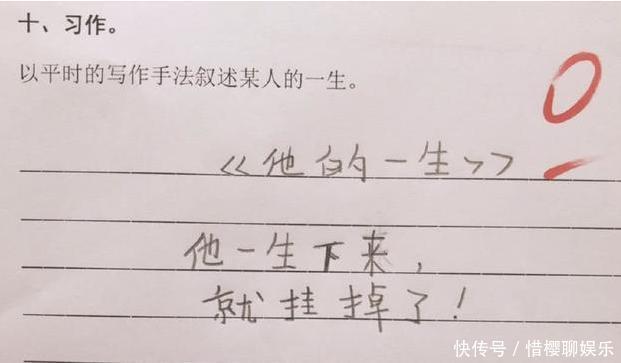 十、习作。
以平时的写作手法叙述某人的一生。
0
《他的一生》
他一生下来，
就挂掉了！
快传号／惜樱聊娱乐